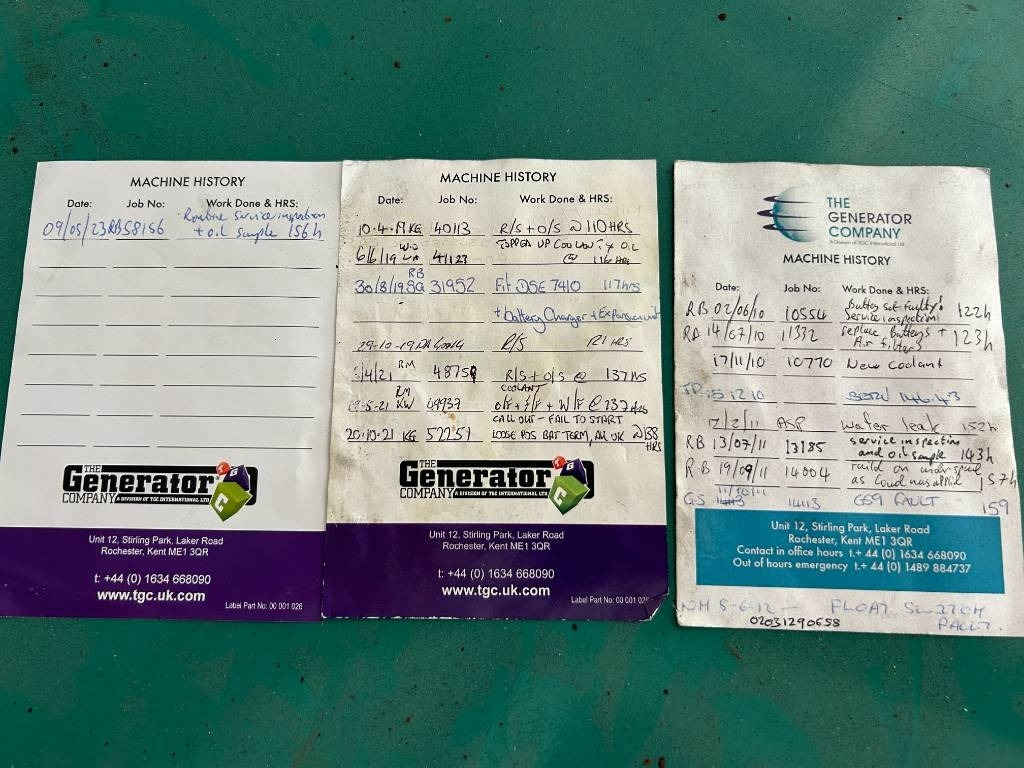 MACHINE HISTORY
Date: Job No: Work Done & HRS:
09/05/23 RB 58156 Routine Service inspection
+ oil sample 156h
THE
Generator
COMPANY A DIVISION OF TGC INTERNATIONAL LTD
Unit 12, Stirling Park, Laker Road
Rochester, Kent ME1 3QR
t: +44 (0) 1634 668090
www.tgc.uk.com
Label Part No: 00 001 026
MACHINE HISTORY
Date: Job No: Work Done & HRS:
10.4.19 KG 40113 R/S + O/S @ 110 HRS
TOPPED UP COOLANT + OIL
6/6/19 41123 @ 116 HRS
RB
30/8/19 SG 31952 Fit DSE 7410 117hrs
+ battery Charger + Expansion unit
29-10-19 R/S 121 HRS
/4/21 RM 48759 R/S + O/S @ 137 HRS
COOLANT
-5-21 KW 49937 O/F + F/F + W/F @ 137 HRS
CALL OUT - FAIL TO START
20.10.21 KG 52251 LOOSE POS BAT TERM, ALL OK @ 138 HRS
THE
Generator
COMPANY A DIVISION OF TGC INTERNATIONAL LTD
Unit 12, Stirling Park, Laker Road
Rochester, Kent ME1 3QR
t: +44 (0) 1634 668090
www.tgc.uk.com
Label Part No: 00 001 026
THE
GENERATOR
COMPANY
A Division of TGC International Ltd
MACHINE HISTORY
Date: Job No: Work Done & HRS:
RB 02/06/10 10554 Battery set faulty!
service inspection 122h
RB 14/07/10 11332 replace Batterys +
Air filters 123h
17/11/10 10770 New Coolant
JP 15 12 10 146.43
2/2/11 ASP water leak 152h
RB 13/07/11 13185 service inspection
and oil sample 143h
RB 19/09/11 14004 Faild on underspeed
as Load was applie 157h
11/10/11
GS 14113 14113 FAULT 159
Unit 12, Stirling Park, Laker Road
Rochester, Kent ME1 3QR
Contact in office hours t.+ 44 (0) 1634 668090
Out of hours emergency t.+ 44 (0) 1489 884737
NH 8-6-12 - FLOAT SWITCH
FAULT.
02031290658